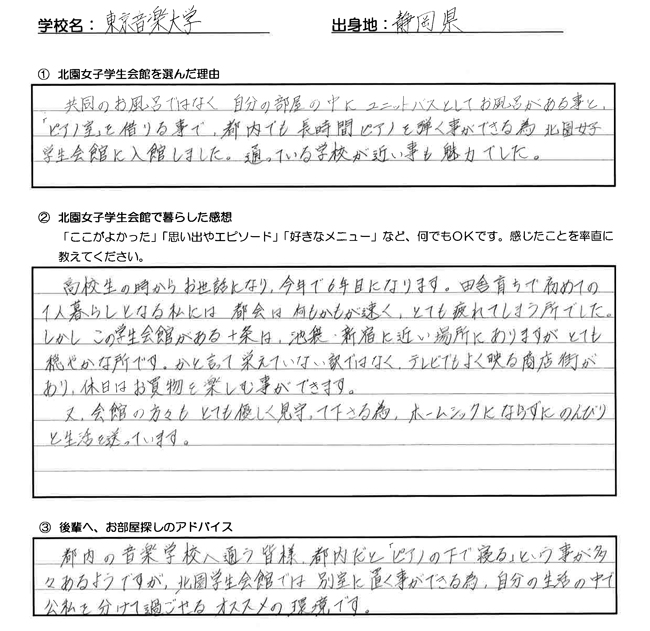 学校名：東京音楽大学 出身地：静岡県
① 北園女子学生会館を選んだ理由
共同のお風呂ではなく 自分の部屋の中に ユニットバスとしてお風呂がある事と、
「ピアノ室」を借りる事で、都内でも長時間ピアノを弾く事ができる為 北園女子
学生会館に入館しました。通っている学校が近い事も魅力でした。
② 北園女子学生会館で暮らした感想
「ここがよかった」「思い出やエピソード」「好きなメニュー」など、何でもOKです。感じたことを率直に
教えてください。
高校生の時からお世話になり、今年で6年目になります。田舎育ちで初めての
1人暮らしとなる私には 都会は何もかもが速く、とても疲れてしまう所でした。
しかし この学生会館がある十条は、池袋・新宿に近い場所にありますが とても
穏やかな所です。かと言って栄えていない訳ではなく、テレビでもよく映る商店街が
あり、休日はお買物を楽しむ事ができます。
又、会館の方々も とても優しく見守って下さる為、ホームシックにならずに のんびり
と生活を送っています。
③ 後輩へ、お部屋探しのアドバイス
都内の音楽学校へ通う皆様、都内だと「ピアノの下で寝る」という事が多
々あるようですが、北園学生会館では 別室に置く事ができる為、自分の生活の中で
公私を分けて過ごせる オススメの環境です。